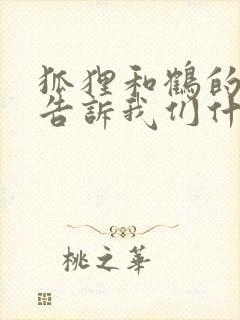 狐狸和鶴的
告訴我们什
桃之華